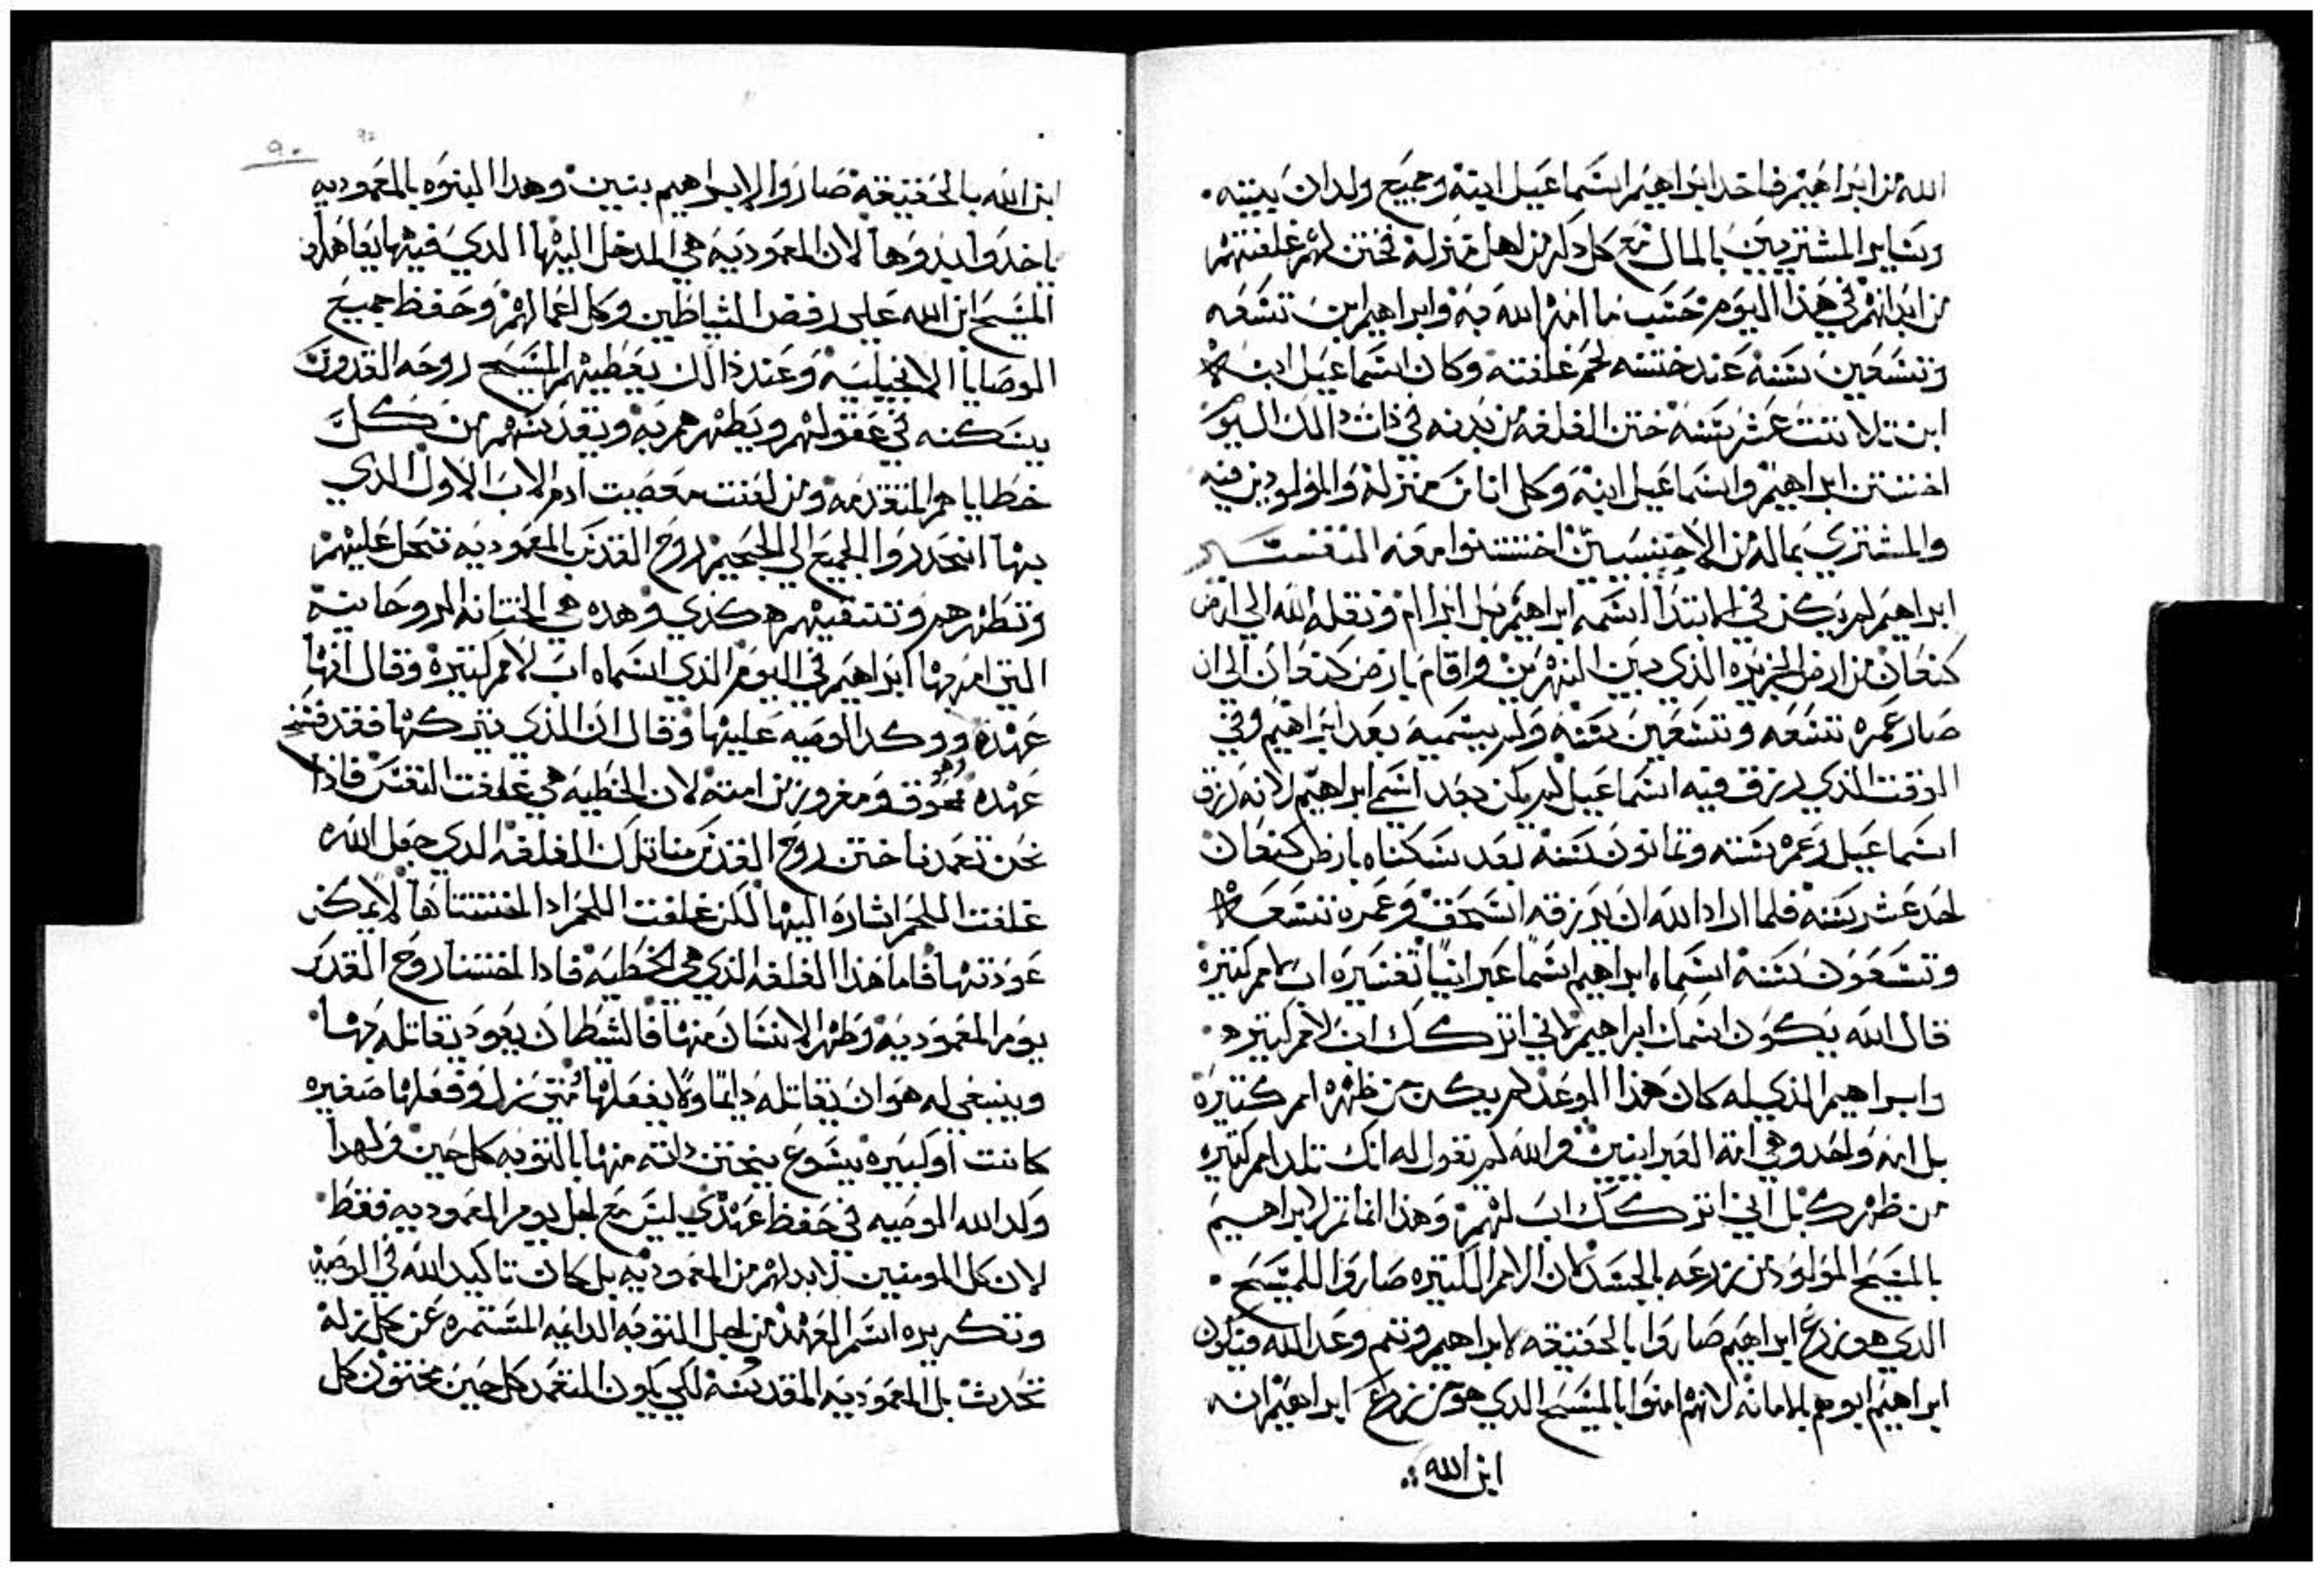 الله من ابراهيم فاخد ابراهيم اسماعيل ابنه وجميع ولدان بيته
وساير المشتريين بالمال مع كل دكر من اهل منزله فختن لهم غلفتهم
من ابدانهم في هذا اليوم حسب ما امره الله به وابراهيم ابن تسعه
وتسعين سنه عند ختنه لحم غلفته وكان اسماعيل ابنه
ابن تلاتت عشر سنه ختن الغلفه من بدنه في ذات دالك اليوم
اختتن ابراهيم واسماعيل ابنه وكل اناس منزله والمولودين فيه
والمشتري بماله من الاجنسيين اختتنوا معه التفسير
ابراهيم لم يكن في الابتدا اسمه ابراهيم بل ابرام ونقله الله الي ارض
كنعان من ارض الجزيره الذي بين النهرين واقام بارض كنعان الي ان
صار عمره تسعه وتسعين سنه ولم يسميه بعد ابراهيم وفي
الوقت الذي رزق فيه اسماعيل لم يكن بعد اسمي ابراهيم لانه رزق
اسماعيل وعمره سته وتمانون سنه بعد سكناه بارض كنعان
احد عشر سنه فلما اراد الله ان يرزقه اسحق وعمره تسعه
وتسعون سنه اسماه ابراهيم اسما عبرانيا تفسيره اب لامم كتيره
قال الله يكون اسمك ابراهيم لاني اتركك اب لامم كتيره
وابراهيم الذي له كان هذا الوعد لم يكن من ظهره امم كتيره
بل امه واحد وهي امة العبرانيين والله لم يقول له انك تلد امم كتيره
من ظهرك بل اني اتركك اب لهم وهذا انما تم لابراهيم
بالمسيح المولود من زرعه بالجسد لان الامم الكتيره صاروا للمسيح
الدي هو زرع ابراهيم صاروا بالحقيقه لابراهيم وتم وعد الله فيكون
ابراهيم ابوهم بالامانه لانهم امنوا بالمسيح الدي هو من زرع ابراهيم انه
ابن الله
٩٠
ابن الله بالحقيقه صاروا لابراهيم بنين وهدا البنوه بالمعموديه
ياخدوا بدوها لان المعموديه هي المدخل اليها الدي فيها يعاهدوا
المسيح ابن الله علي رفض الشياطين وكل اعمالهم وحفظ جميع
الوصايا الانجيليه وعند ذالك يعطيهم المسيح روحه القدوس
يسكنه في عقولهم ويطهرهم به ويقدسهم من كل
خطاياهم المتقدمه ومن لعنت معصيت ادم الاب الاول الدي
بها انحدروا الجميع الي الجحيم روح القدس بالمعموديه تحل عليهم
وتطهرهم وتنقيهم هكدي وهده هي الختانه الروحانيه
التي امر بها ابراهيم في اليوم الذي اسماه اب لامم كتيره وقال انها
عهده ووكد الوصيه عليها وقال ان الذي يتركها فقد فسخ
عهده وهو معوق ومفروز من امته لان الخطيه هي غلفت النفس فاذا
نحن تعمدنا ختن روح القدس منا تلك الغلفه الدي جعل الله
غلفت اللحم اشاره اليها لكن غلفت اللحم ادا اختتناها لا يمكن
عودتها فاما هذا الغلفه الذي هي الخطيه فادا اختنا روح القدس
يوم المعموديه وطهر الانسان منها فالشيطان يعود يقاتله بها
وينبغي له هو ان يقاتله دايما ولا يفعلها متي زل وفعلها صغيره
كانت او كبيره يسوع يختن داته منها بالتوبه كل حين ولهدا
وكد الله الوصيه في حفظ عهدي ليس مع اجل يوم المعموديه فقط
لان كل المومنين لابد لهم من المعموديه بل كان تاكيد الله في الوصيه
وتكريره اسم العهد من اجل التوبه الدايمه المستمره عن كل زله
تحدث بل المعموديه المقدسه لكي يكون المتعمد كل حين مختون كل